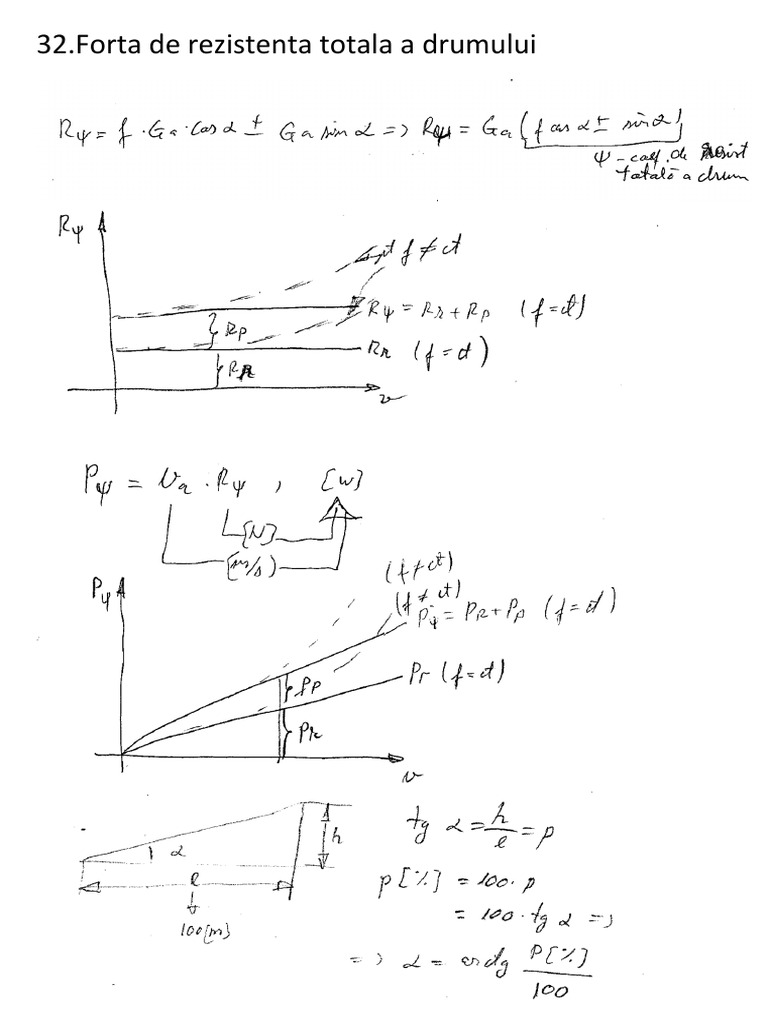 32.Forta de rezistenta totala a drumului
Rψ = f · Ga · cos α ± Ga sin α => Rψ = Ga (f cos α ± sin α)
ψ - coef. de rezist
totală a drum
Rψ
pt f ≠ ct
Rψ = Rr + Rp (f = ct)
Rp
Rr (f = ct)
Rr
v
Pψ = Va · Rψ , [W]
[N]
[m/s]
(f ≠ ct)
Pψ
(f ≠ ct)
Pψ = Pr + Pp (f = ct)
Pr (f = ct)
Pp
Pr
v
tg α = h/l = p
h
α
l
p [%] = 100 · p
100 [m]
= 100 · tg α =>
=> α = arctg P[%]/100